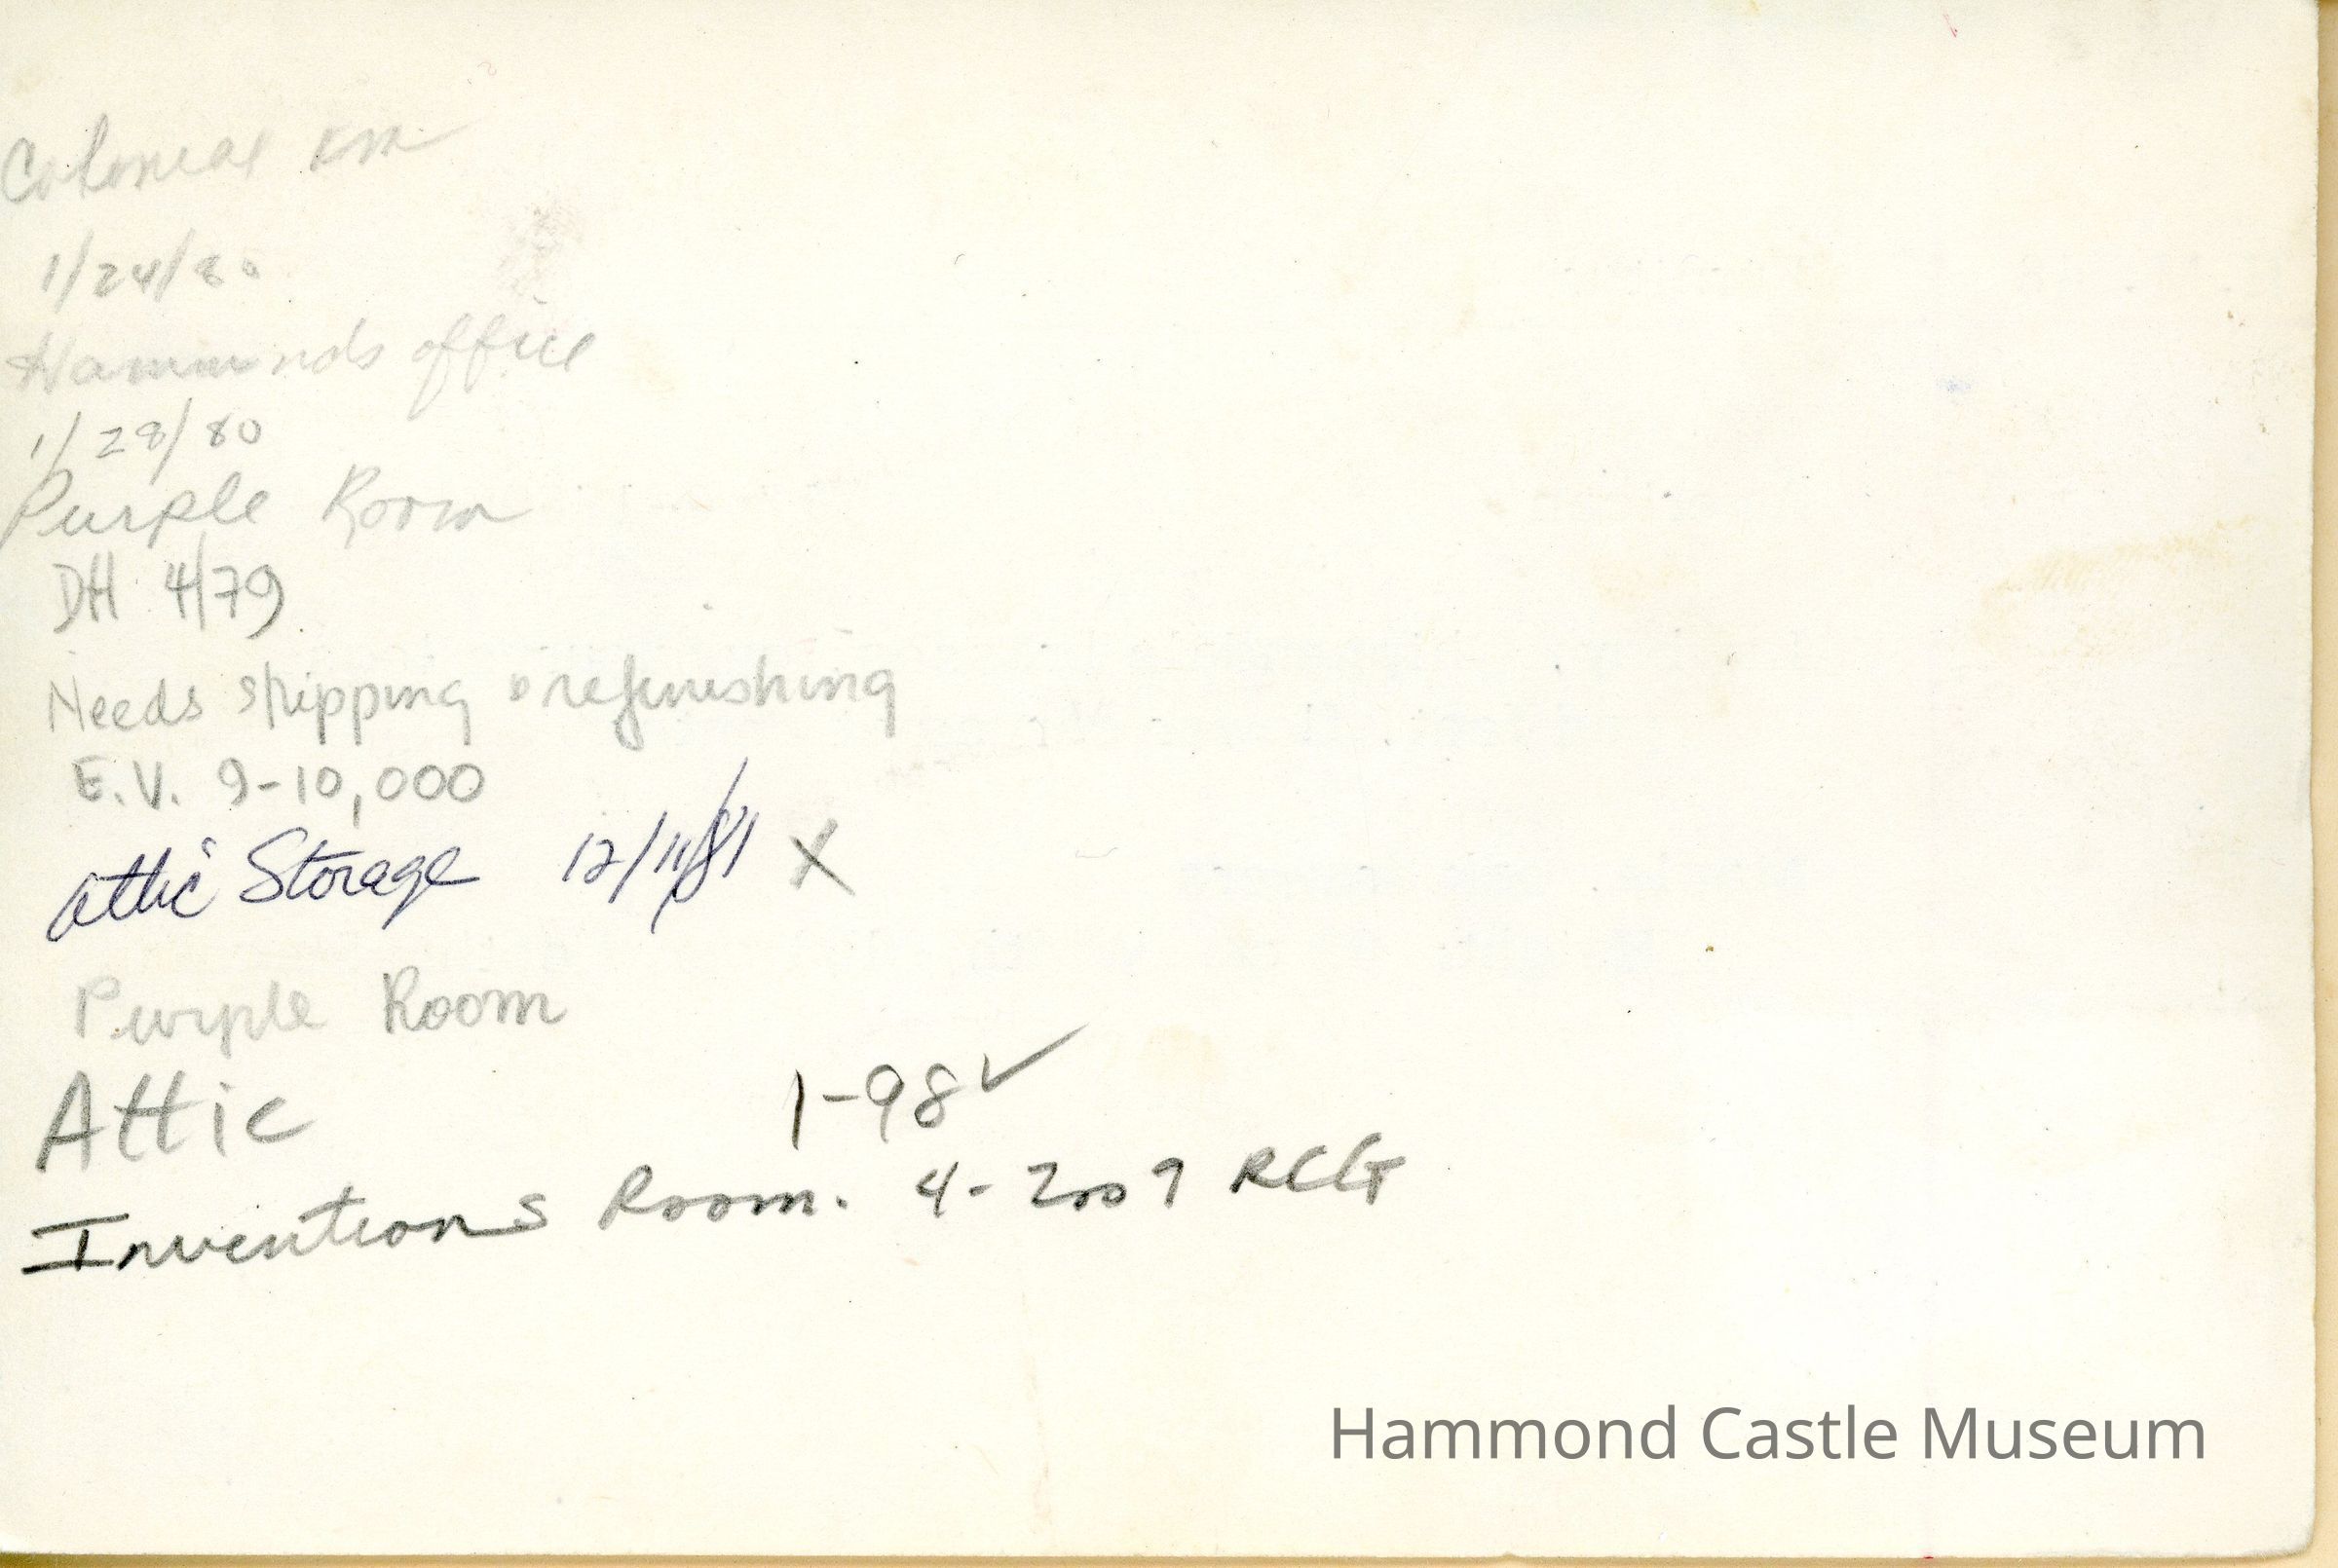 Colonial rm
1/24/80
Hammonds office
1/28/80
Purple Room
DH 4/79
Needs stripping & refinishing
E.V. 9-10,000
Attic Storage 12/11/81 X
Purple Room
Attic 1-98 ✓
Inventions Room. 4-2009
Hammond Castle Museum